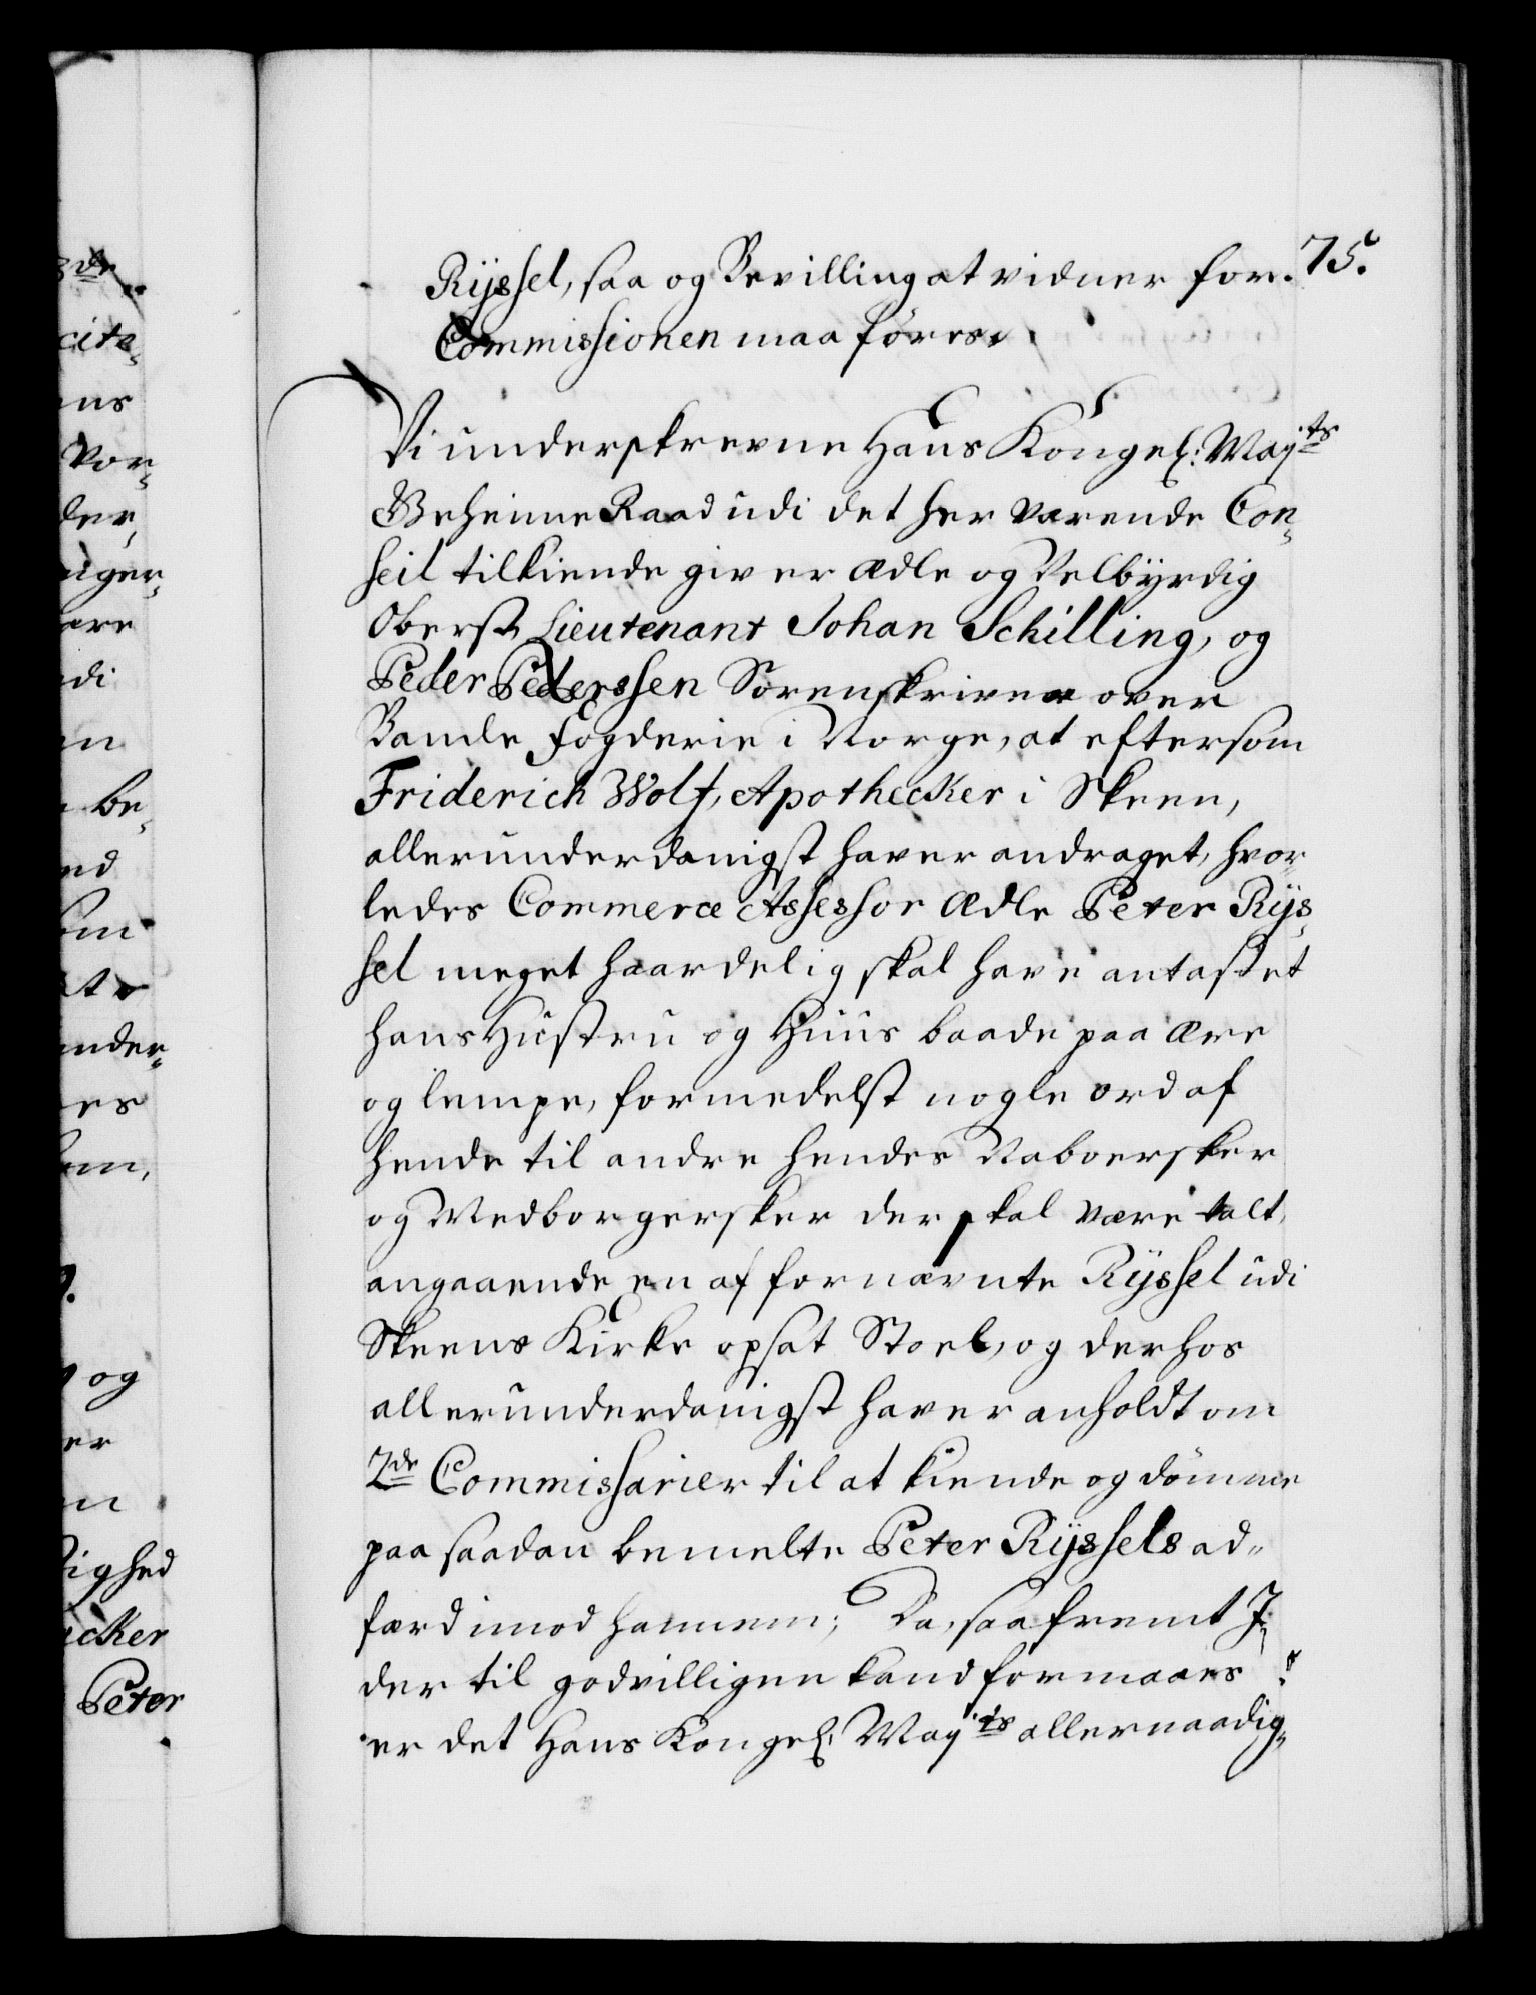 75.
Rÿssel, saa og Bevilling at vidner for
Commissionen maa föres.
Vi underskrevne Hans Kongel: Mayts
Geheime Raad udi det her værende Con,,
seil tilkiende giver Ædle og Velbÿrdig
Oberst Lieutenant Johan Schilling, og
Peder Pederssen Sorenskriver over
Bamle Fogderie i Norge, at eftersom
Friderich Wolf, Apothecker i Skeen,
allerunderdanigst haver andraget, hvor,,
ledes Commerce Assessor Ædle Peter Rÿs,,
sel meget haardelig skal have antastet
hans Hustru og Huus baade paa ære
og lempe, formedelst nogle ord af
hende til andre hendes Naboersker
og Medborgersker der skal være talt,
angaaende en af fornævnte Rÿssel udi
Skeens Kirke opsat Stoel, og derhos
allerunderdanigst haver anholdt om
2de Commissarier til at kiende og dömme
paa saadan bemelte Peter Rÿssels ad,,
færd imod hannem; Da, saafremt I
der til godvilligen kand formaaes
er det Hans Kongel: Mayts allernaadig,,
8de
cite,,
ens
Vor,,
der,
uger,,
are
di
en
be,,
ed
om
at
under,,
es
om,
og
er
en
tighed
ecker
Peter